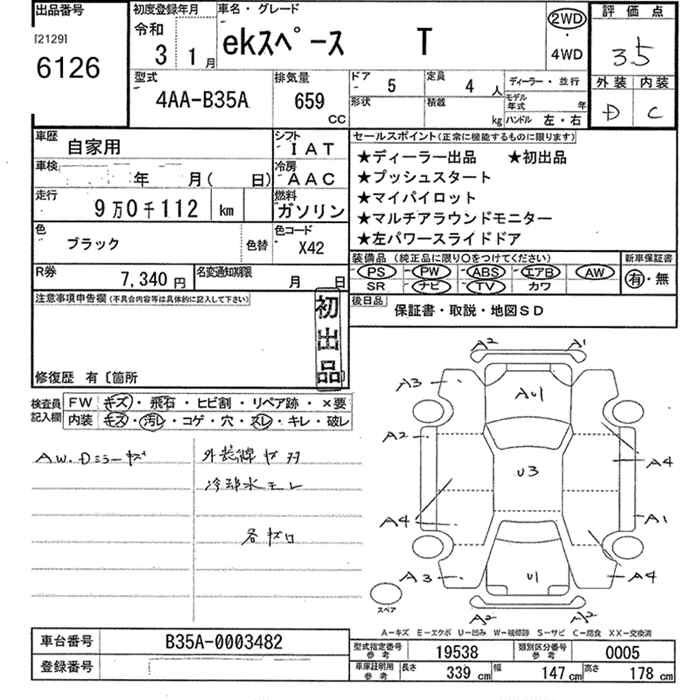 出品番号 初度登録年月 車名・グレード 評価点
[2129]
6126
令和 3 1月
ekスペース T
2WD ・ 4WD
3.5
外装 内装
D C
型式 排気量 ドア 定員 ディーラー・並行
4AA-B35A 659 CC - 5 4 人
形状 積載 kg モデル年式 年
ハンドル 左・右
車歴 自家用 シフト IAT
セールスポイント(正常に機能するものに限ります)
★ディーラー出品 ★初出品
★プッシュスタート
★マイパイロット
★マルチアラウンドモニター
★左パワースライドドア
車検 年 月( 日) 冷房 AAC
走行 9万0千112 km 燃料 ガソリン
色 ブラック 色替 色コード X42
装備品(純正品に限り○をつけてください) 新車保証書
PS PW ABS エアB AW 有・無
SR ナビ TV カワ
R券 7,340円 名変通知期限 月 日
後日品 保証書・取説・地図SD
注意事項申告欄(不具合内容等は具体的に記入して下さい)
初出品
修復歴 有〔箇所
検査員記入欄 FW キズ・飛石・ヒビ割・リペア跡・×要
内装 キズ・汚レ・コゲ・穴・スレ・キレ・破レ
AW.Dミラーキズ
冷却水モレ
A2 A1
A3 A3
AU1
A2
U3
A4
A4 A1
A3 U1 A4
スペア
A2
A-キズ E-エクボ U-凹み W-補修跡 S-サビ C-腐食 XX-交換済
車台番号 B35A-0003482
型式指定番号 参考 19538 類別区分番号 参考 0005
登録番号
車庫証明用 参考 長さ 339 cm 幅 147 cm 高さ 178 cm